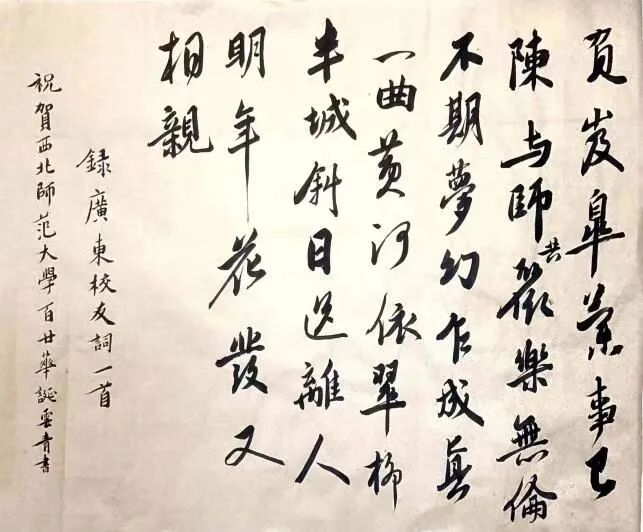 負笈皋蘭事已
陳与師共歡樂無倫
不期夢幻乍成真
一曲黄河依翠柳
半城斜日送離人
明年花發又
相親
録廣東校友詞一首
祝賀西北師范大學百廿華誕雲青書